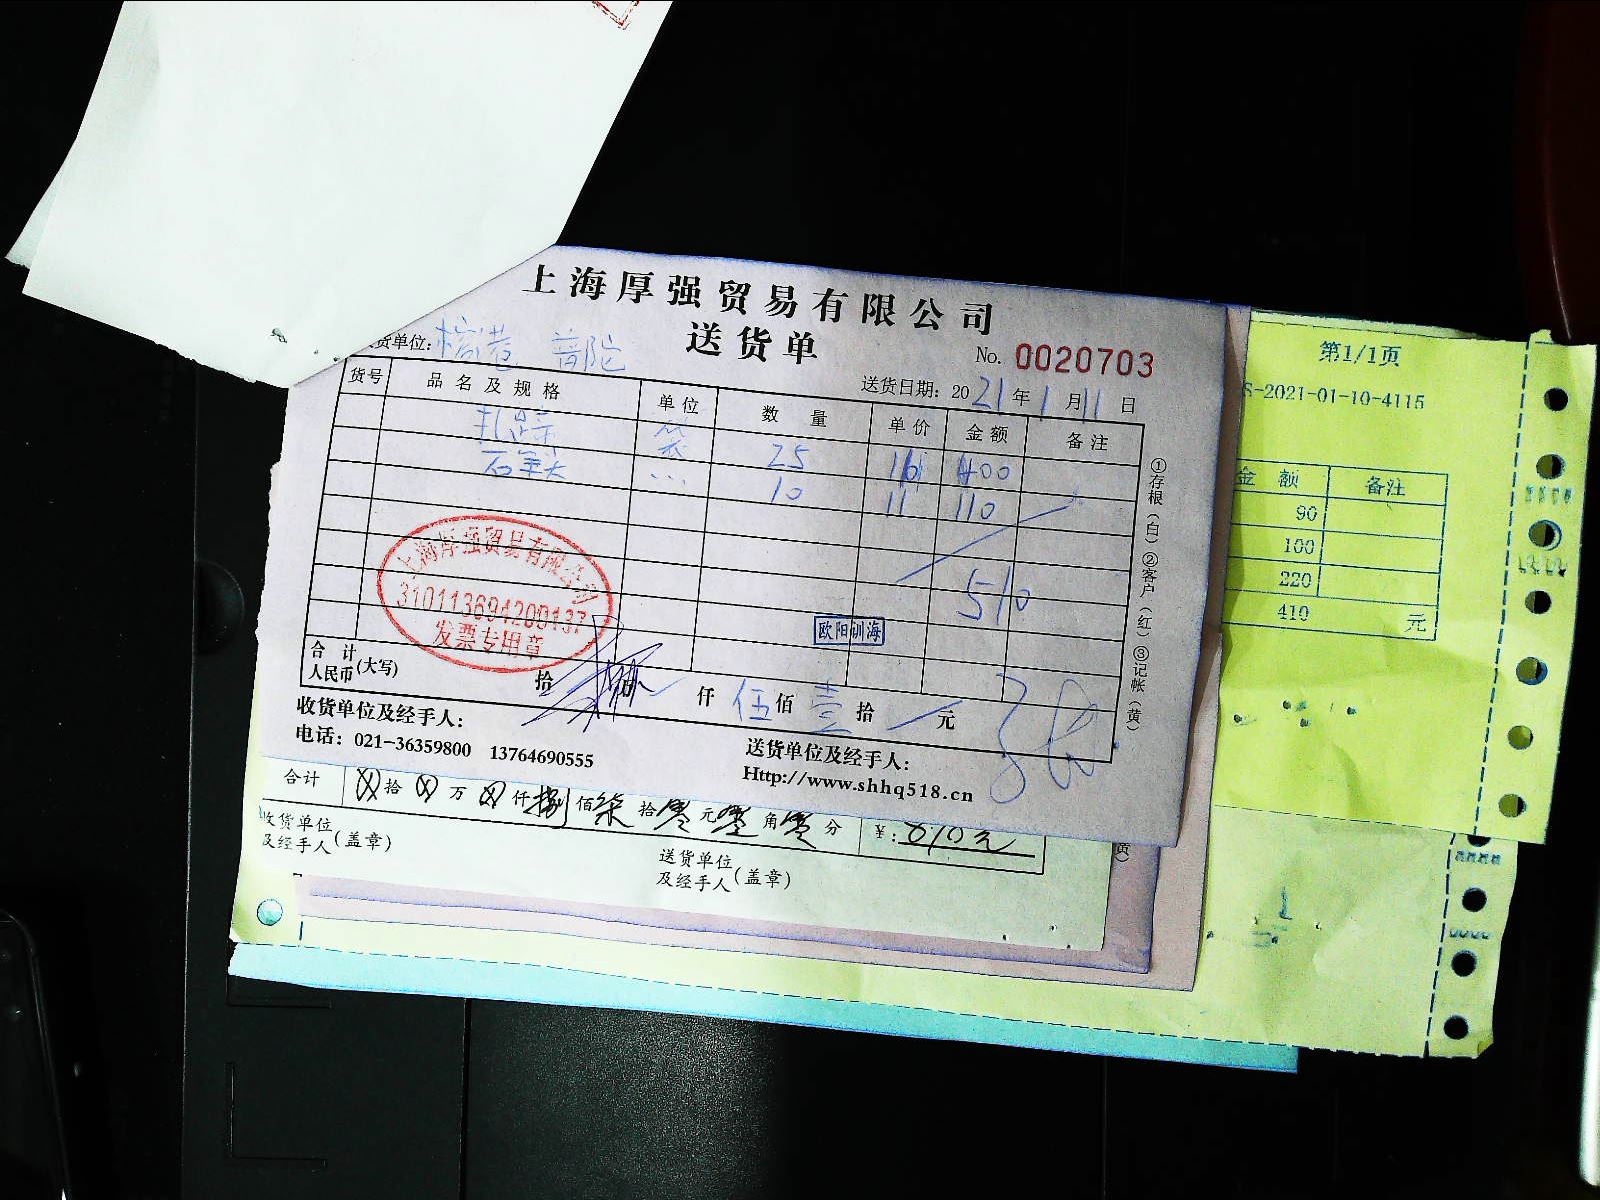 上海厚强贸易有限公司
送货单
No. 0020703
货单位: 普陀
送货日期: 2021年1月11日
货号 品名及规格 单位 数量 单价 金额 备注
袋 25 16 400
… 10 11 110
510
上海厚强贸易有限公司
310113694200137
发票专用章
欧阳训海
合计
人民币(大写) 拾 万 仟 伍佰 壹拾 元
收货单位及经手人:
电话: 021-36359800 13764690555
送货单位及经手人:
Http://www.shhq518.cn
①存根(白) ②客户(红) ③记帐(黄)
第1/1页
S-2021-01-10-4115
金额 备注
90
100
220
410 元
合计 拾 万 仟捌佰柒拾零元零角零分 ¥: 870元
收货单位
及经手人(盖章)
送货单位
及经手人(盖章)
黄)